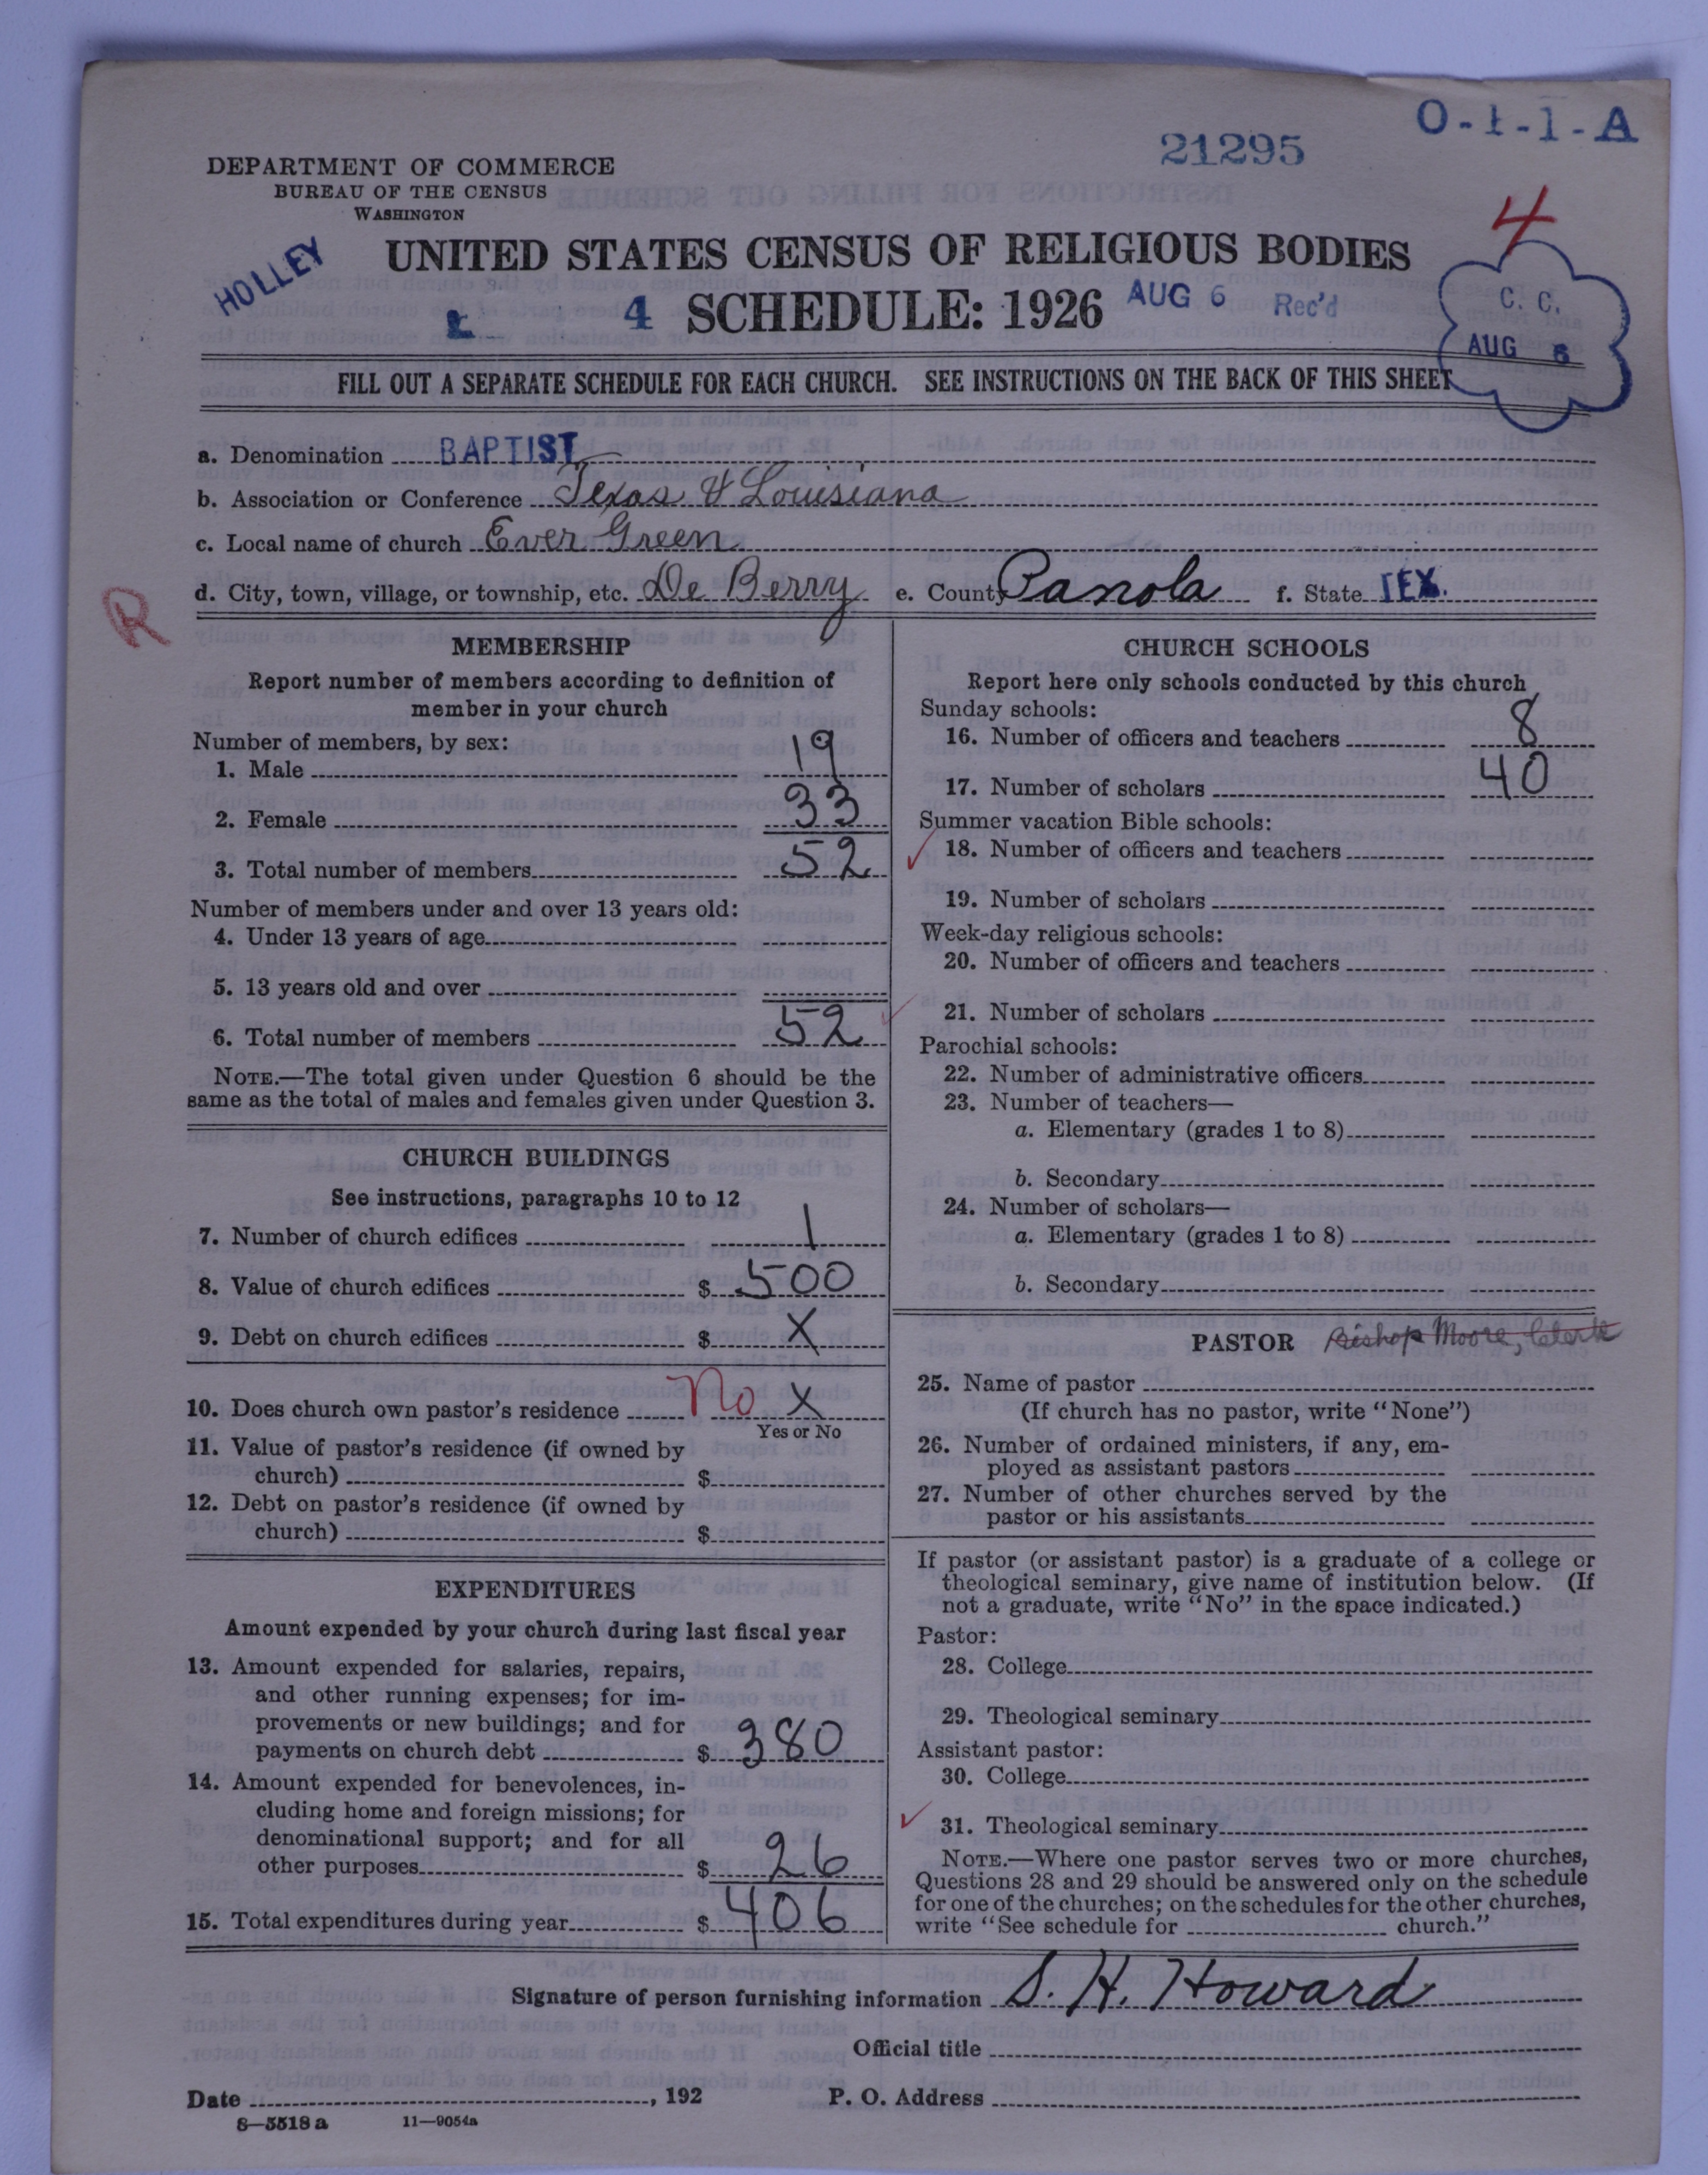 O-1-1-A
21295
DEPARTMENT OF COMMERCE
BUREAU OF THE CENSUS
WASHINGTON
4
HOLLEY
UNITED STATES CENSUS OF RELIGIOUS BODIES
4 SCHEDULE: 1926 AUG 6 Rec'd
C. C.
AUG 6
FILL OUT A SEPARATE SCHEDULE FOR EACH CHURCH. SEE INSTRUCTIONS ON THE BACK OF THIS SHEET
a. Denomination BAPTIST
b. Association or Conference Texas & Louisiana
c. Local name of church Ever Green
d. City, town, village, or township, etc. De Berry e. County Panola f. State TEX.
R
MEMBERSHIP
Report number of members according to definition of
member in your church
Number of members, by sex:
1. Male 19
2. Female 33
3. Total number of members 52
Number of members under and over 13 years old:
4. Under 13 years of age
5. 13 years old and over
6. Total number of members 52
NOTE.—The total given under Question 6 should be the
same as the total of males and females given under Question 3.
CHURCH BUILDINGS
See instructions, paragraphs 10 to 12
7. Number of church edifices 1
8. Value of church edifices $ 500
9. Debt on church edifices $ X
10. Does church own pastor's residence No X
Yes or No
11. Value of pastor's residence (if owned by
church) $
12. Debt on pastor's residence (if owned by
church) $
EXPENDITURES
Amount expended by your church during last fiscal year
13. Amount expended for salaries, repairs,
and other running expenses; for im-
provements or new buildings; and for
payments on church debt $ 380
14. Amount expended for benevolences, in-
cluding home and foreign missions; for
denominational support; and for all
other purposes $ 26
15. Total expenditures during year $ 406
CHURCH SCHOOLS
Report here only schools conducted by this church
Sunday schools:
16. Number of officers and teachers 8
17. Number of scholars 40
Summer vacation Bible schools:
18. Number of officers and teachers
19. Number of scholars
Week-day religious schools:
20. Number of officers and teachers
21. Number of scholars
Parochial schools:
22. Number of administrative officers
23. Number of teachers—
a. Elementary (grades 1 to 8)
b. Secondary
24. Number of scholars—
a. Elementary (grades 1 to 8)
b. Secondary
PASTOR Bishop Moore, Clerk
25. Name of pastor
(If church has no pastor, write "None")
26. Number of ordained ministers, if any, em-
ployed as assistant pastors
27. Number of other churches served by the
pastor or his assistants
If pastor (or assistant pastor) is a graduate of a college or
theological seminary, give name of institution below. (If
not a graduate, write "No" in the space indicated.)
Pastor:
28. College
29. Theological seminary
Assistant pastor:
30. College
31. Theological seminary
NOTE.—Where one pastor serves two or more churches,
Questions 28 and 29 should be answered only on the schedule
for one of the churches; on the schedules for the other churches,
write "See schedule for church."
Signature of person furnishing information S. H. Howard
Official title
Date , 192 P. O. Address
8—5518 a 11—9054a